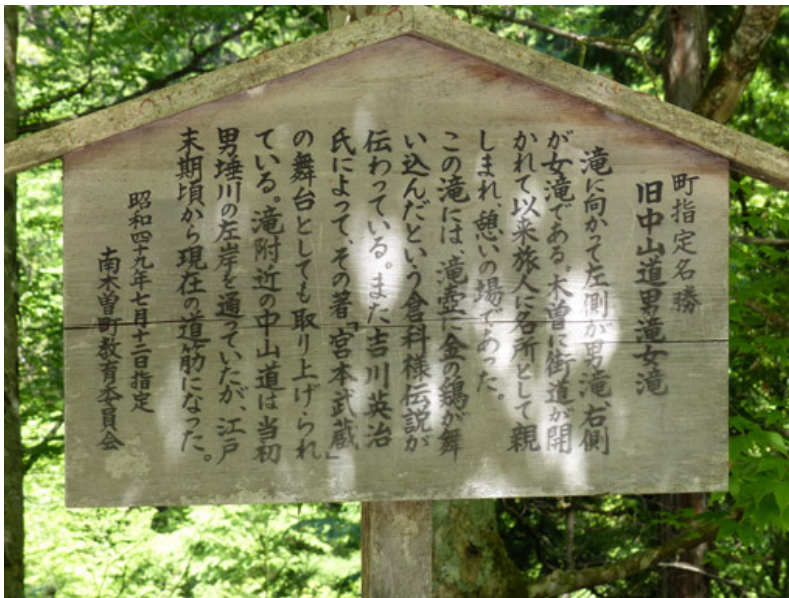 町指定名勝
旧中山道男滝女滝
滝に向かって左側が男滝、右側
が女滝である。木曽に街道が開
かれて以来旅人に名所として親
しまれ、憩いの場であった。
この滝には、滝壺に金の鶏が舞
い込んだという倉科様伝説が
伝わっている。また、吉川英治
氏によって、その著「宮本武蔵」
の舞台としても取り上げられ
ている。滝附近の中山道は当初
男埵川の左岸を通っていたが、江戸
末期頃から現在の道筋になった。
昭和四十九年七月十二日指定
南木曽町教育委員会